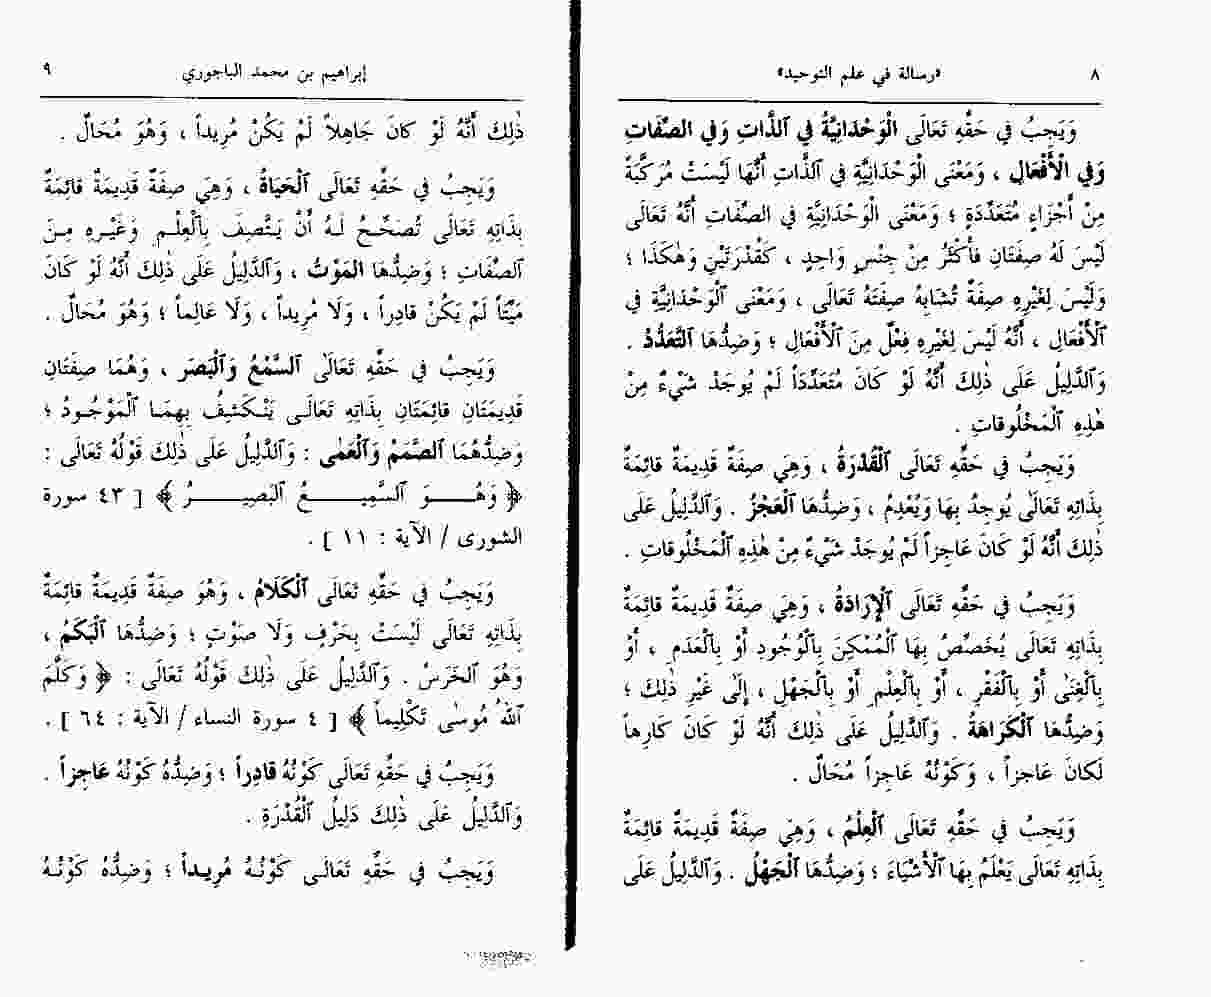 ٨
«رسالة في علم التوحيد»
وَيَجِبُ فِي حَقِّهِ تَعَالَى الْوَحْدَانِيَّةُ فِي ٱلذَّاتِ وَفِي الصِّفَاتِ
وَفِي الْأَفْعَالِ ، وَمَعْنَى الْوَحْدَانِيَّةِ فِي ٱلذَّاتِ أَنَّهَا لَيْسَتْ مُرَكَّبَةً
مِنْ أَجْزَاءٍ مُتَعَدِّدَةٍ ؛ وَمَعْنَى الْوَحْدَانِيَّةِ فِي الصِّفَاتِ أَنَّهُ تَعَالَى
لَيْسَ لَهُ صِفَتَانِ فَأَكْثَرُ مِنْ جِنْسٍ وَاحِدٍ ، كَقُدْرَتَيْنِ وَهٰكَذَا ؛
وَلَيْسَ لِغَيْرِهِ صِفَةٌ تُشَابِهُ صِفَتَهُ تَعَالَى ، وَمَعْنَى ٱلْوَحْدَانِيَّةِ فِي
ٱلْأَفْعَالِ ، أَنَّهُ لَيْسَ لِغَيْرِهِ فِعْلٌ مِنَ ٱلْأَفْعَالِ ؛ وَضِدُّهَا ٱلتَّعَدُّدُ .
وَٱلدَّلِيلُ عَلَى ذٰلِكَ أَنَّهُ لَوْ كَانَ مُتَعَدِّدَاً لَمْ يُوجَدْ شَيْءٌ مِنْ
هٰذِهِ ٱلْمَخْلُوقَاتِ .
وَيَجِبُ فِي حَقِّهِ تَعَالَى ٱلْقُدْرَةُ ، وَهِيَ صِفَةٌ قَدِيمَةٌ قَائِمَةٌ
بِذَاتِهِ تَعَالَىٰ يُوجِدُ بِهَا وَيُعْدِمُ ، وَضِدُّهَا ٱلْعَجْزُ . وَٱلدَّلِيلُ عَلَى
ذٰلِكَ أَنَّهُ لَوْ كَانَ عَاجِزاً لَمْ يُوجَدْ شَيْءٌ مِنْ هٰذِهِ ٱلْمَخْلُوقَاتِ .
وَيَجِبُ فِي حَقِّهِ تَعَالَى ٱلْإِرَادَةُ ، وَهِيَ صِفَةٌ قَدِيمَةٌ قَائِمَةٌ
بِذَاتِهِ تَعَالَى يُخَصِّصُ بِهَا ٱلْمُمْكِنَ بِٱلْوُجُودِ أَوْ بِٱلْعَدَمِ ، أَوْ
بِٱلْغِنَىٰ أَوْ بِٱلْفَقْرِ ، أَوْ بِٱلْعِلْمِ أَوْ بِٱلْجَهْلِ ، إِلَىٰ غَيْرِ ذٰلِكَ ؛
وَضِدُّهَا ٱلْكَرَاهَةُ . وَٱلدَّلِيلُ عَلَى ذٰلِكَ أَنَّهُ لَوْ كَانَ كَارِهاً
لَكَانَ عَاجِزاً ، وَكَوْنُهُ عَاجِزاً مُحَالٌ .
وَيَجِبُ فِي حَقِّهِ تَعَالَى ٱلْعِلْمُ ، وَهِيَ صِفَةٌ قَدِيمَةٌ قَائِمَةٌ
بِذَاتِهِ تَعَالَى يَعْلَمُ بِهَا ٱلْأَشْيَاءَ ؛ وَضِدُّهَا ٱلْجَهْلُ . وَٱلدَّلِيلُ عَلَى
إبراهيم بن محمد الباجوري
٩
ذٰلِكَ أَنَّهُ لَوْ كَانَ جَاهِلاً لَمْ يَكُنْ مُرِيداً ، وَهُوَ مُحَالٌ .
وَيَجِبُ فِي حَقِّهِ تَعَالَى ٱلْحَيَاةُ ، وَهِيَ صِفَةٌ قَدِيمَةٌ قَائِمَةٌ
بِذَاتِهِ تَعَالَى تُصَحِّحُ لَهُ أَنْ يَتَّصِفَ بِٱلْعِلْمِ وَغَيْرِهِ مِنَ
ٱلصِّفَاتِ ؛ وَضِدُّهَا المَوْتُ ، وَٱلدَّلِيلُ عَلَى ذٰلِكَ أَنَّهُ لَوْ كَانَ
مَيِّتاً لَمْ يَكُنْ قَادِراً ، وَلَا مُرِيداً ، وَلَا عَالِماً ؛ وَهُوَ مُحَالٌ .
وَيَجِبُ فِي حَقِّهِ تَعَالَىٰ ٱلسَّمْعُ وَٱلْبَصَر ، وَهُمَا صِفَتَانِ
قَدِيمَتَانِ قَائِمَتَانِ بِذَاتِهِ تَعَالَى يَنْكَشِفُ بِهِمَا ٱلْمَوْجُودُ ؛
وَضِدُّهُمَا ٱلصَّمَمُ وَٱلْعَمَى : وَٱلدَّلِيلُ عَلَى ذٰلِكَ قَوْلُهُ تَعَالَى :
﴿ وَهُوَ ٱلسَّمِيعُ ٱلبَصِيرُ ﴾ [ ٤٣ سورة
الشورى / الآية : ١١ ] .
وَيَجِبُ فِي حَقِّهِ تَعَالَى ٱلْكَلَامُ ، وَهُوَ صِفَةٌ قَدِيمَةٌ قَائِمَةٌ
بِذَاتِهِ تَعَالَى لَيْسَتْ بِحَرْفٍ وَلَا صَوْتٍ ؛ وَضِدُّهَا ٱلْبَكَمُ ،
وَهُوَ ٱلخَرَسُ . وَٱلدَّلِيلُ عَلَى ذٰلِكَ قَوْلُهُ تَعَالَى : ﴿ وَكَلَّمَ
ٱللهُ مُوسَى تَكْلِيماً ﴾ [ ٤ سورة النساء / الآية : ٦٤ ] .
وَيَجِبُ فِي حَقِّهِ تَعَالَى كَوْنُهُ قادِراً ؛ وَضِدُّهُ كَوْنُهُ عَاجِزاً .
وَٱلدَّلِيلُ عَلَى ذٰلِكَ دَلِيلُ ٱلْقُدْرَةِ .
وَيَجِبُ فِي حَقِّهِ تَعَالَى كَوْنُهُ مُرِيداً ؛ وَضِدُّهُ كَوْنُهُ